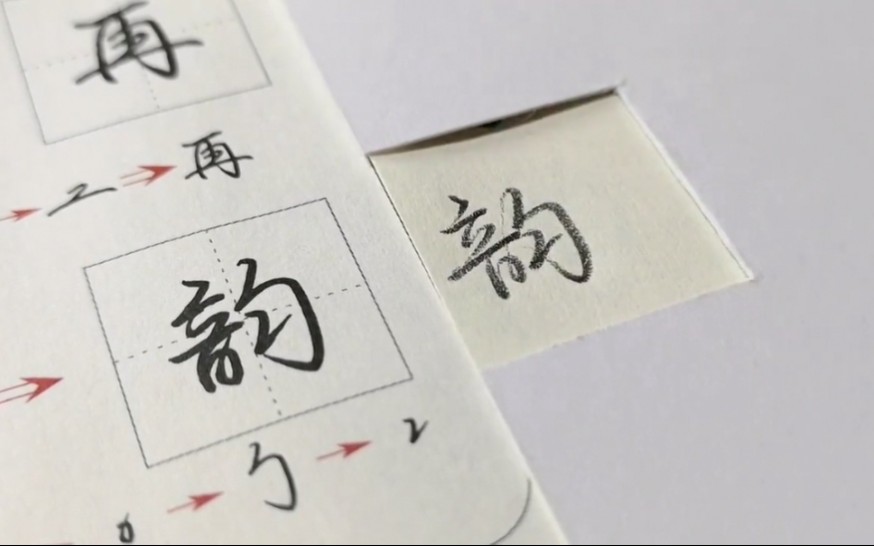 再
再
韵 韵